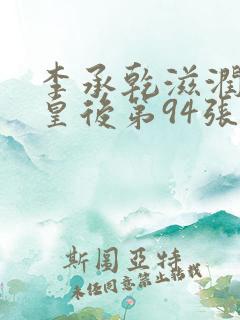 李承乾滋潤
皇後第94張
斯圖亞特
未任同意禁止轉載